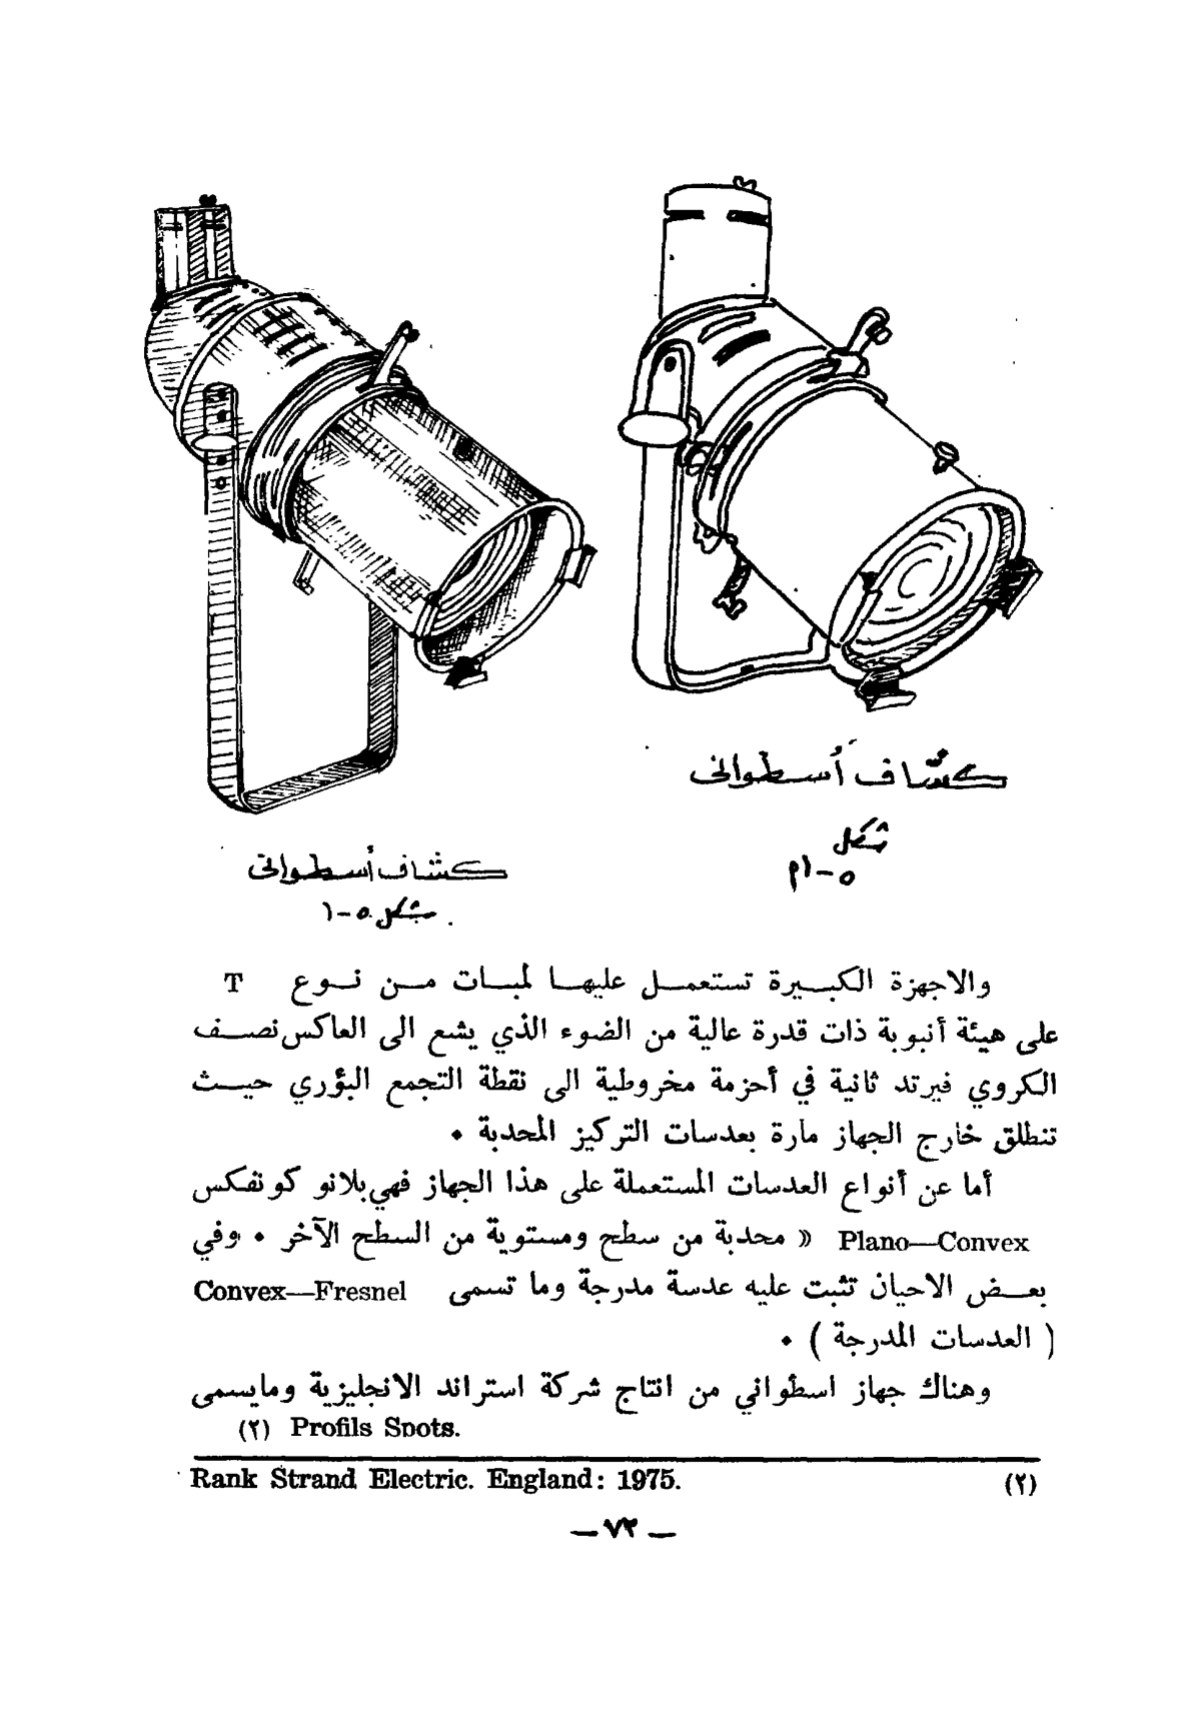 كشاف أسطواني
شكل
٥-١م
كشاف أسطواني
شكل ٥-١
والاجهزة الكبيرة تستعمل عليها لمبات من نوع T
على هيئة أنبوبة ذات قدرة عالية من الضوء الذي يشع الى العاكس نصف
الكروي فيرتد ثانية في أحزمة مخروطية الى نقطة التجمع البؤري حيث
تنطلق خارج الجهاز مارة بعدسات التركيز المحدبة .
أما عن أنواع العدسات المستعملة على هذا الجهاز فهي بلانو كونفكس
Plano—Convex » محدبة من سطح ومستوية من السطح الآخر . وفي
بعض الاحيان تثبت عليه عدسة مدرجة وما تسمى Convex—Fresnel
( العدسات المدرجة ) .
وهناك جهاز اسطواني من انتاج شركة استراند الانجليزية ومايسمى
(٢) Profils Spots.
(٢) Rank Strand Electric. England: 1975.
— ٧٣ —